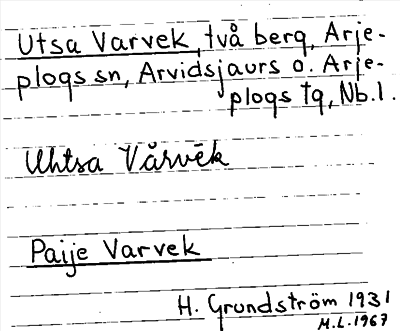 Utsa Varvek, två berg, Arje-
plogs sn, Arvidsjaurs o. Arje-
plogs tg, Nb.l.
Uhtsa Vårvēk
Paije Varvek
H. Grundström 1931
M.L. 1967